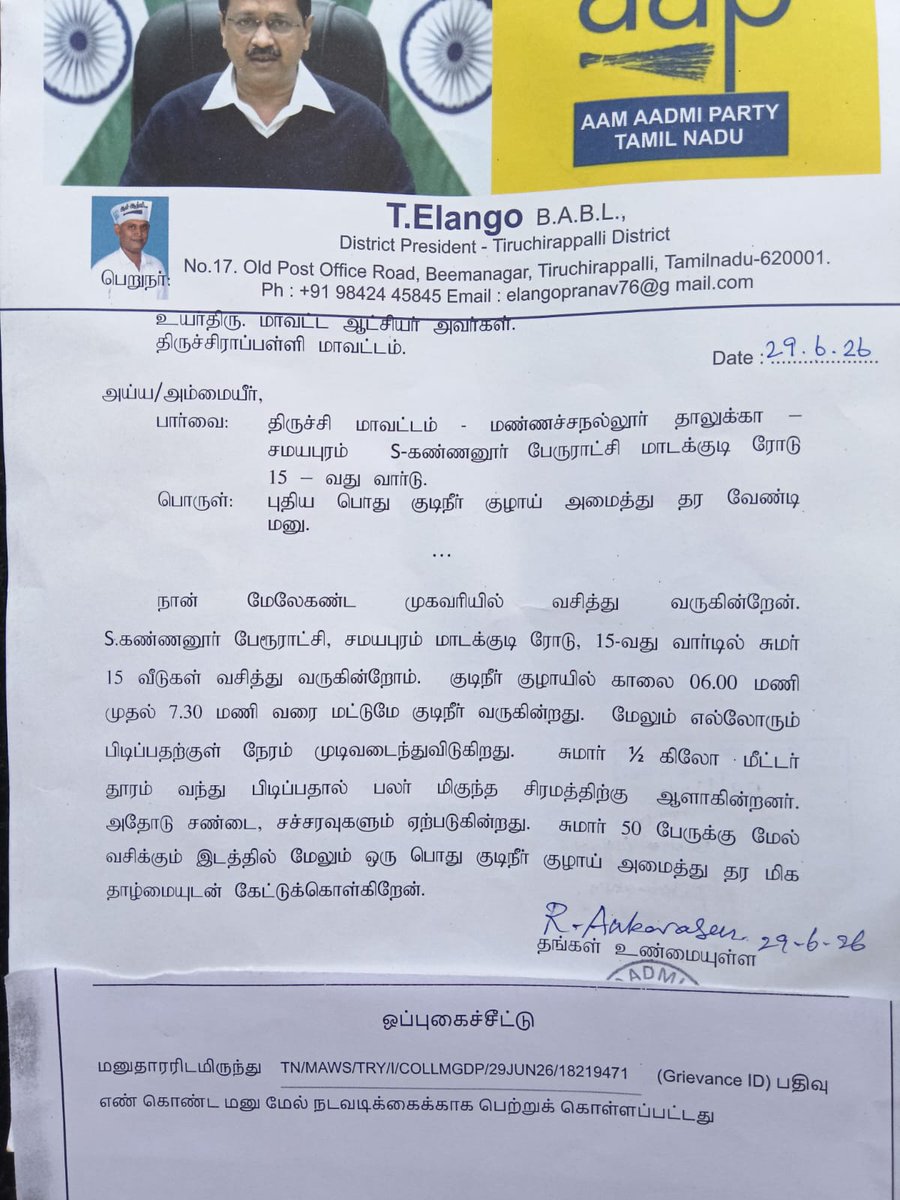 aap
AAM AADMI PARTY
TAMIL NADU
T.Elango B.A.B.L.,
District President - Tiruchirappalli District
No.17. Old Post Office Road, Beemanagar, Tiruchirappalli, Tamilnadu-620001.
Ph : +91 98424 45845 Email : elangopranav76@g mail.com
பெறுநர்:
உயர்திரு. மாவட்ட ஆட்சியர் அவர்கள்.
திருச்சிராப்பள்ளி மாவட்டம்.
Date : 29.6.26
அய்ய/அம்மையீர்,
பார்வை: திருச்சி மாவட்டம் - மண்ணச்சநல்லூர் தாலுக்கா –
சமயபுரம் S-கண்ணனூர் பேருராட்சி மாடக்குடி ரோடு
15 – வது வார்டு.
பொருள்: புதிய பொது குடிநீர் குழாய் அமைத்து தர வேண்டி
மனு.
...
நான் மேலேகண்ட முகவரியில் வசித்து வருகின்றேன்.
S.கண்ணனூர் பேரூராட்சி, சமயபுரம் மாடக்குடி ரோடு, 15-வது வார்டில் சுமர்
15 வீடுகள் வசித்து வருகின்றோம். குடிநீர் குழாயில் காலை 06.00 மணி
முதல் 7.30 மணி வரை மட்டுமே குடிநீர் வருகின்றது. மேலும் எல்லோரும்
பிடிப்பதற்குள் நேரம் முடிவடைந்துவிடுகிறது. சுமார் ½ கிலோ மீட்டர்
தூரம் வந்து பிடிப்பதால் பலர் மிகுந்த சிரமத்திற்கு ஆளாகின்றனர்.
அதோடு சண்டை, சச்சரவுகளும் ஏற்படுகின்றது. சுமார் 50 பேருக்கு மேல்
வசிக்கும் இடத்தில் மேலும் ஒரு பொது குடிநீர் குழாய் அமைத்து தர மிக
தாழ்மையுடன் கேட்டுக்கொள்கிறேன்.
29-6-26
தங்கள் உண்மையுள்ள
ADMI
ஒப்புகைச்சீட்டு
மனுதாரரிடமிருந்து TN/MAWS/TRY/I/COLLMGDP/29JUN26/18219471 (Grievance ID) பதிவு
எண் கொண்ட மனு மேல் நடவடிக்கைக்காக பெற்றுக் கொள்ளப்பட்டது